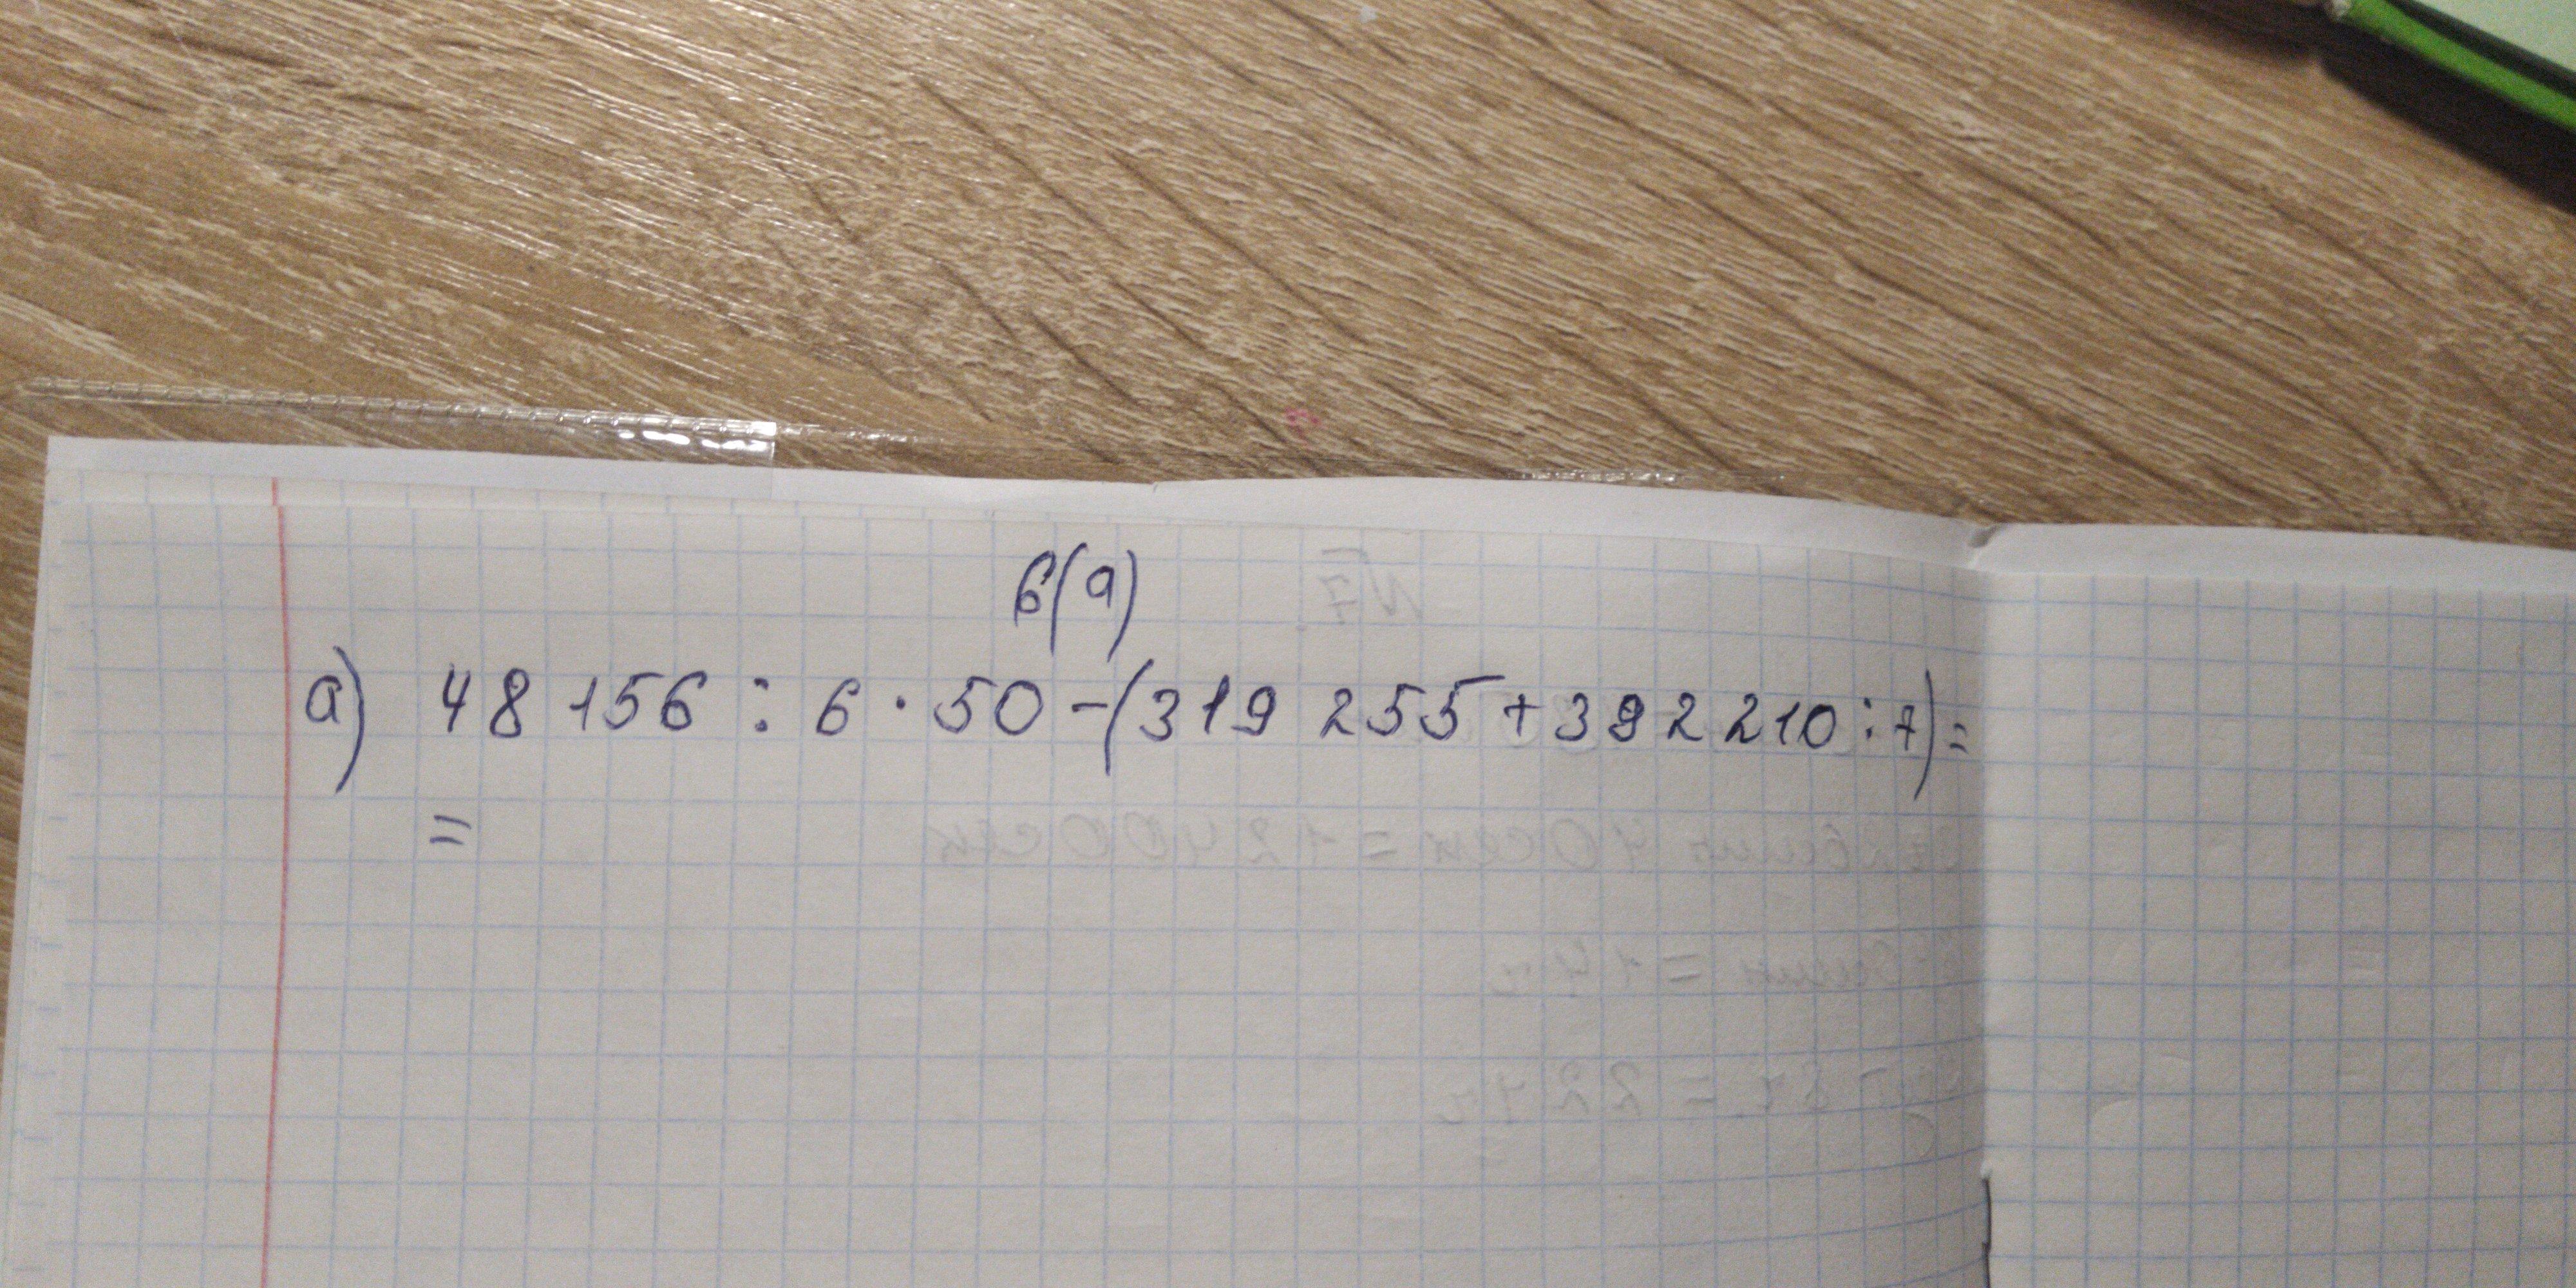 6(а)
а) 48 156 : 6 · 50 - (319 255 + 392 210 : 7) =
=